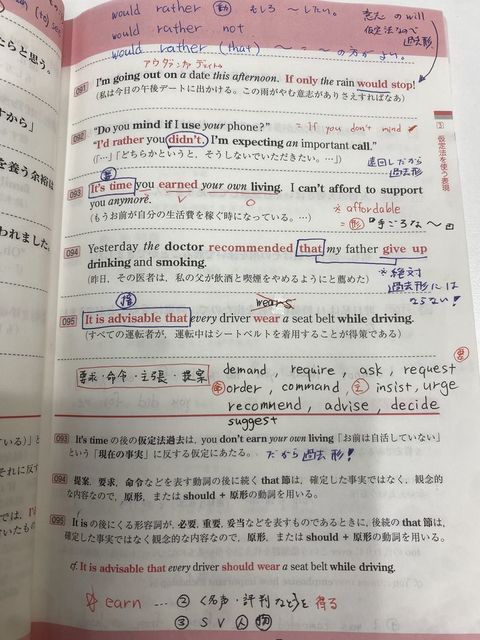 would rather 動 もしろ ～したい。
意志のwill
would rather not
仮定法なので
過去形
would rather (that) ～ = ～の方がよい。
アウタンナデイト
091 I'm going out on a date this afternoon. If only the rain would stop!
(私は今日の午後デートに出かける。この雨がやむ意志がありさえすればなあ)
092 “Do you mind if I use your phone?” = If you don't mind
“I'd rather you didn't. I'm expecting an important call.”
(「…」「どちらかというと，そうしないでいただきたい。…」)
遠回しだから
過去形
093 It's time you earned your own living. I can't afford to support
you anymore. V O
※ affordable
(もうお前が自分の生活費を稼ぐ時になっている。…)
=形 "手ごろな～"
094 Yesterday the doctor recommended that my father give up
drinking and smoking.
(昨日，その医者は，私の父が飲酒と喫煙をやめるようにと薦めた)
※絶対
過去形には
ならない!
wears
095 It is advisable that every driver wear a seat belt while driving.
(すべての運転者が，運転中はシートベルトを着用することが得策である)
要求・命令・主張・提案
demand, require, ask, request 要
命 order, command, 主 insist, urge
recommend, advise, decide
suggest
093 It's time の後の仮定法過去は，you don't earn your own living「お前は自活していない」
という「現在の事実」に反する仮定にあたる。 だから過去形!
094 提案，要求，命令などを表す動詞の後に続く that 節は，確定した事実ではなく，観念的
な内容なので，原形，または should + 原形の動詞を用いる。
095 It is の後にくる形容詞が，必要，重要，妥当などを表すものであるときに，後続の that 節は，
確定した事実ではなく観念的な内容なので，原形，または should + 原形の動詞を用いる。
cf. It is advisable that every driver should wear a seat belt while driving.
earn … ② <名声・評判など>を得る
③ S V 人 物
③ 仮定法を使う表現